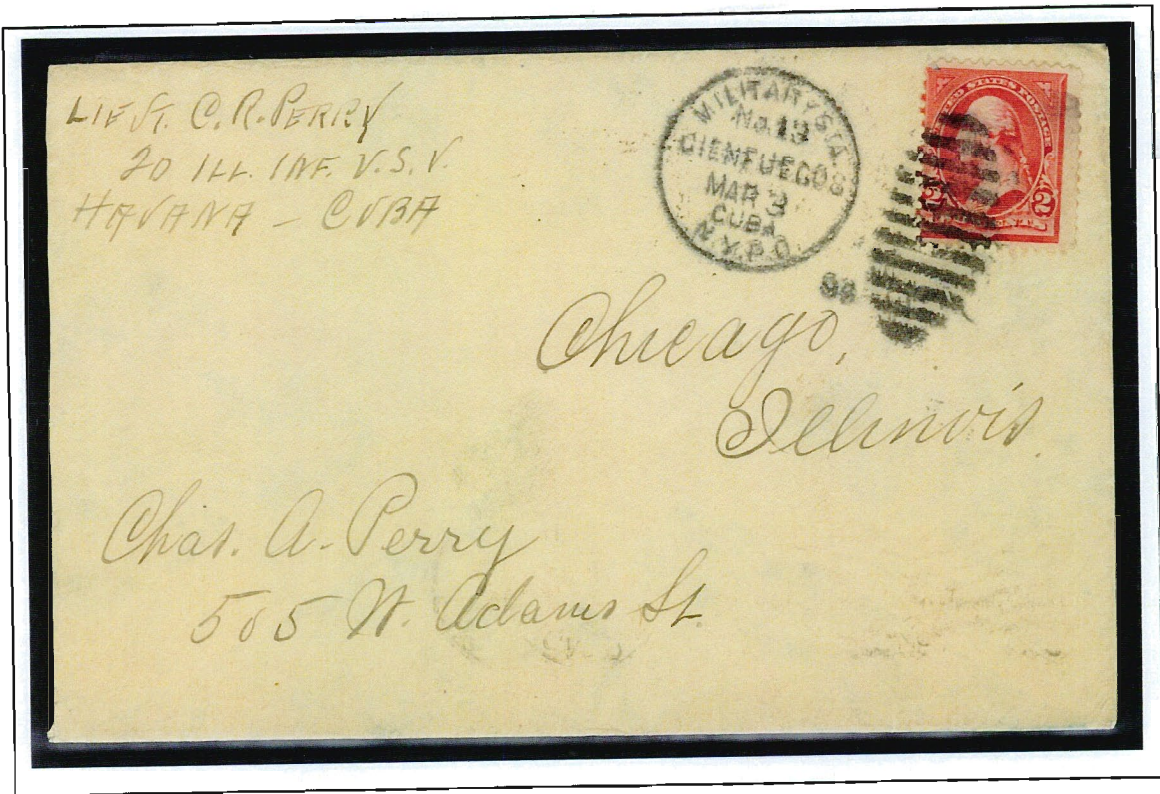 LIEUT. C. R. PERRY
20 ILL. INF. U.S.V.
HAVANA – CUBA
MILITARY STA.
No. 13
CIENFUEGOS
MAR 3
CUBA
N.Y.P.O.
UNITED STATES POSTAGE
2 CENTS 2
Chicago,
Illinois.
Chas. A. Perry
505 W. Adams St.